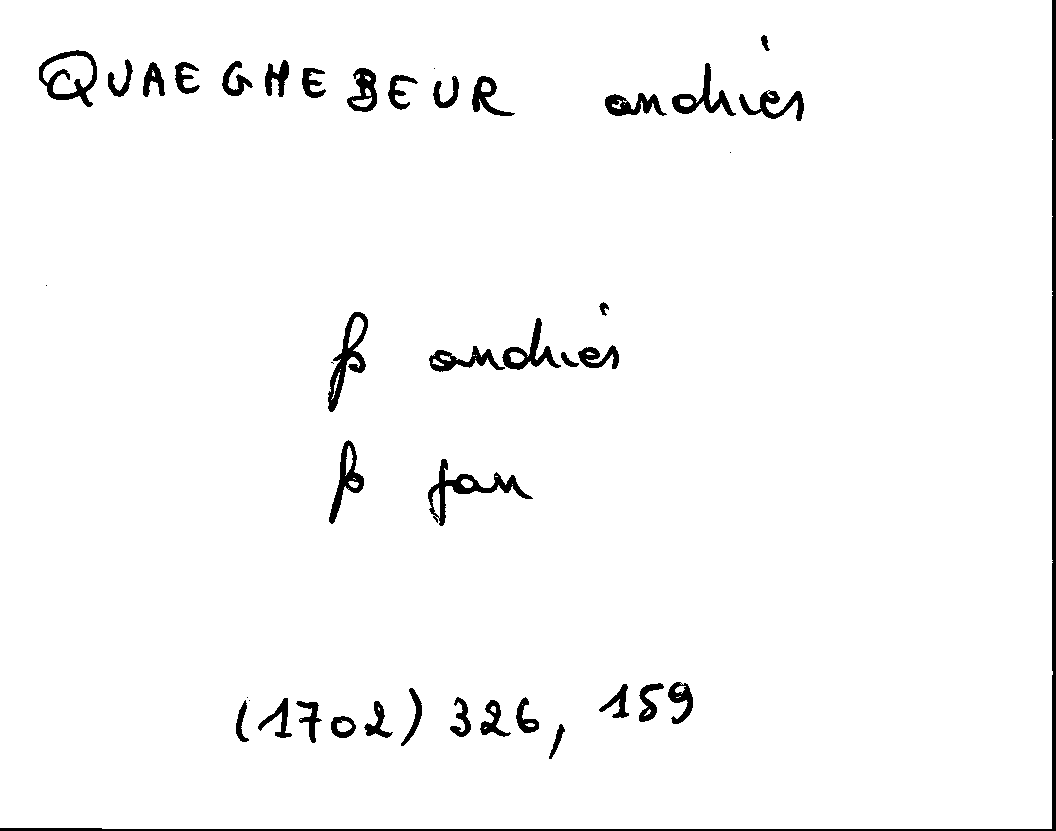 QUAEGHEBEUR andries
fs andries
fs jan
(1702) 326, 159